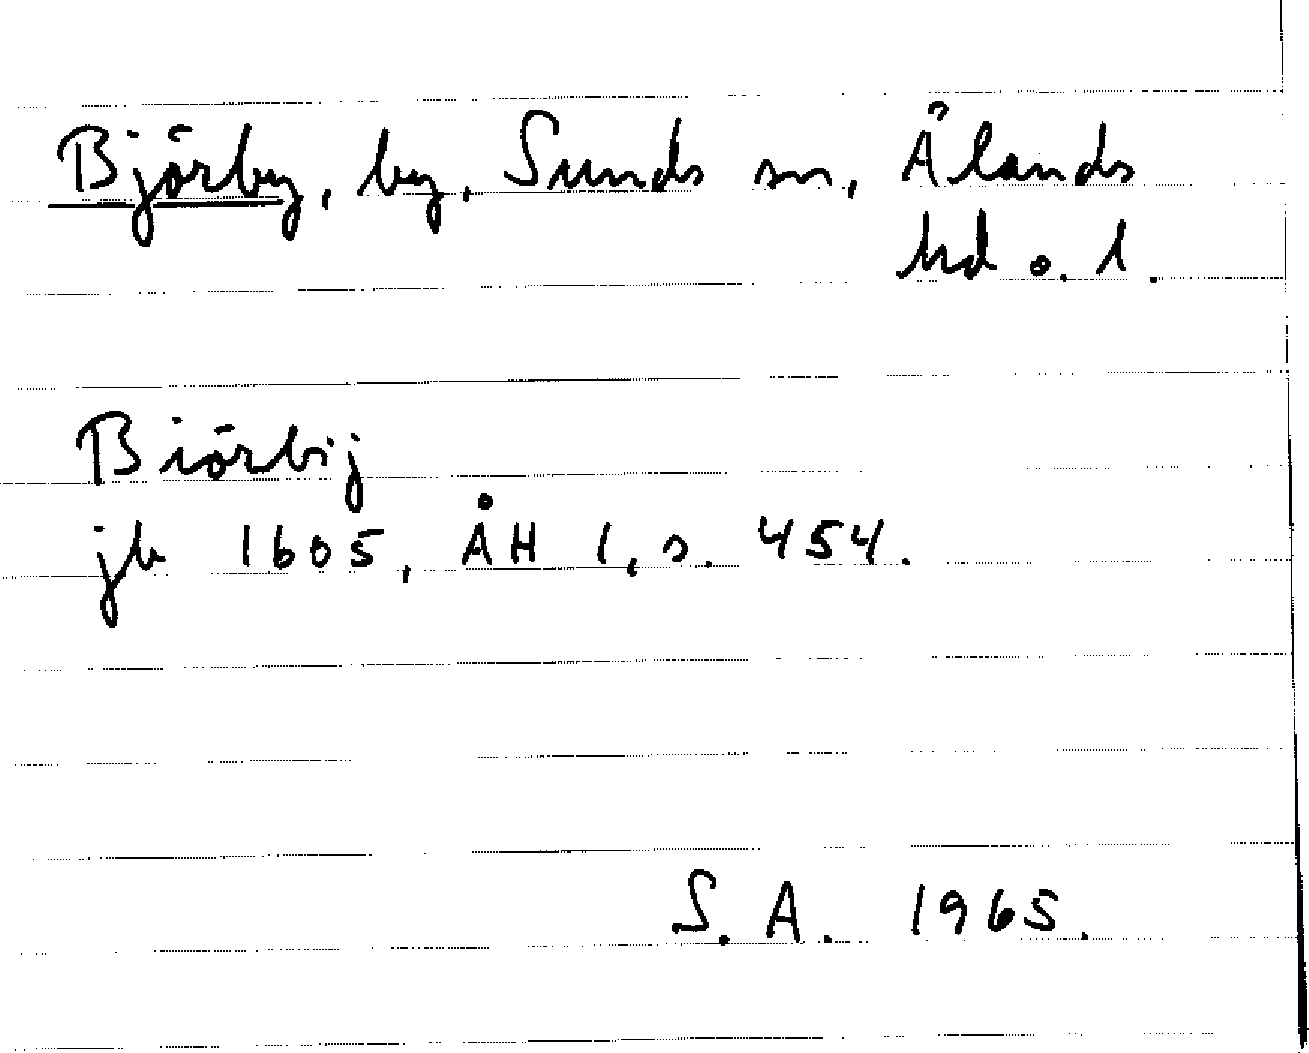 Björby, by, Sunds sn, Ålands
hd o. l.
Biörbij
jb 1605, ÅH 1, s. 454.
S. A. 1965.